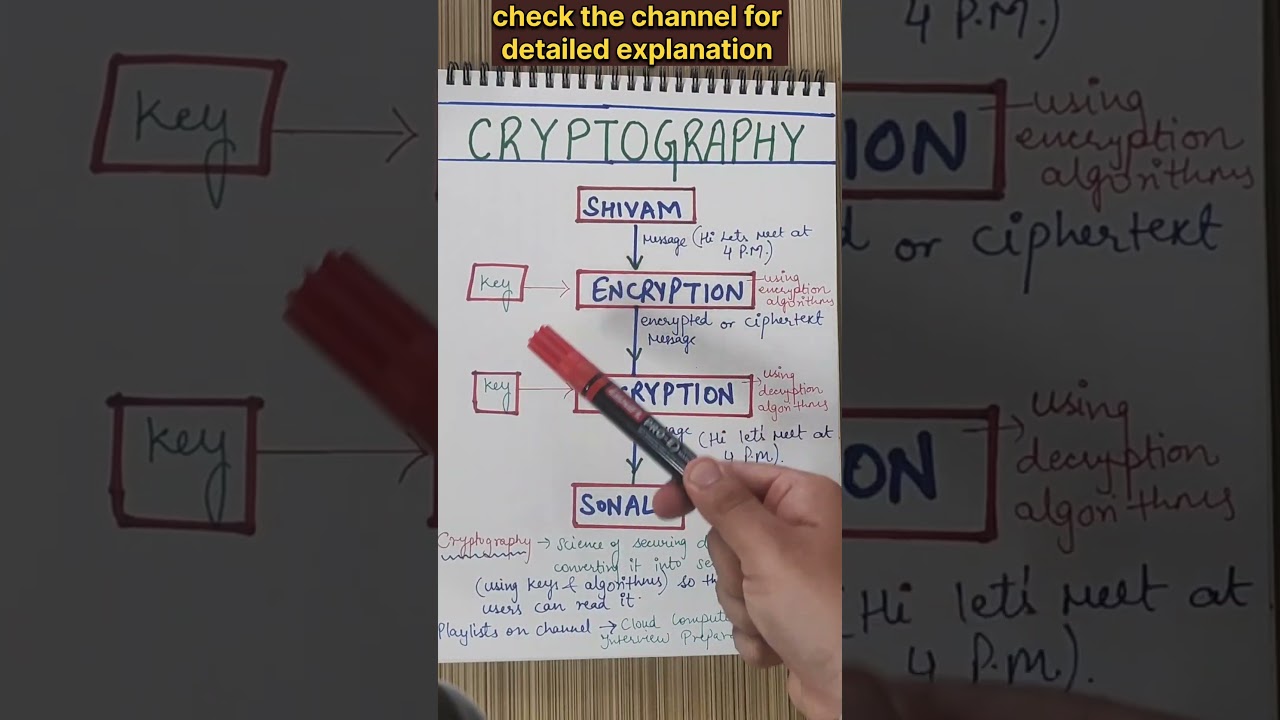 check the channel for
detailed explanation
CRYPTOGRAPHY
SHIVAM
Message (Hi Lets Meet at
4 P.M.)
Key
ENCRYPTION
using
encryption
algorithms
encrypted or ciphertext
Message
Key
RYPTION
using
decryption
algorithms
(Hi let's Meet at
4 P.M.).
SONAL
Cryptography → Science of securing
converting it into
(using keys & algorithms) so
users can read it.
Playlists on channel → Cloud
Interview
Key
ION
using
encryption
algorithms
or ciphertext
4 P.M.)
Key
ON
using
decryption
algorithms
Hi let's Meet at
4 P.M.).